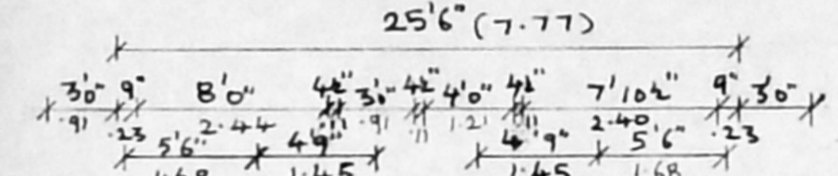 25'6" (7.77)
3'0" 9" 8'0" 4½" 3'0" 4½" 4'0" 4½" 7'10½" 9" 3'0"
.91 .23 2.44 .11 .91 .11 1.21 .11 2.40 .23
5'6" 4'9" 4'9" 5'6"
1.68 1.45 1.45 1.68